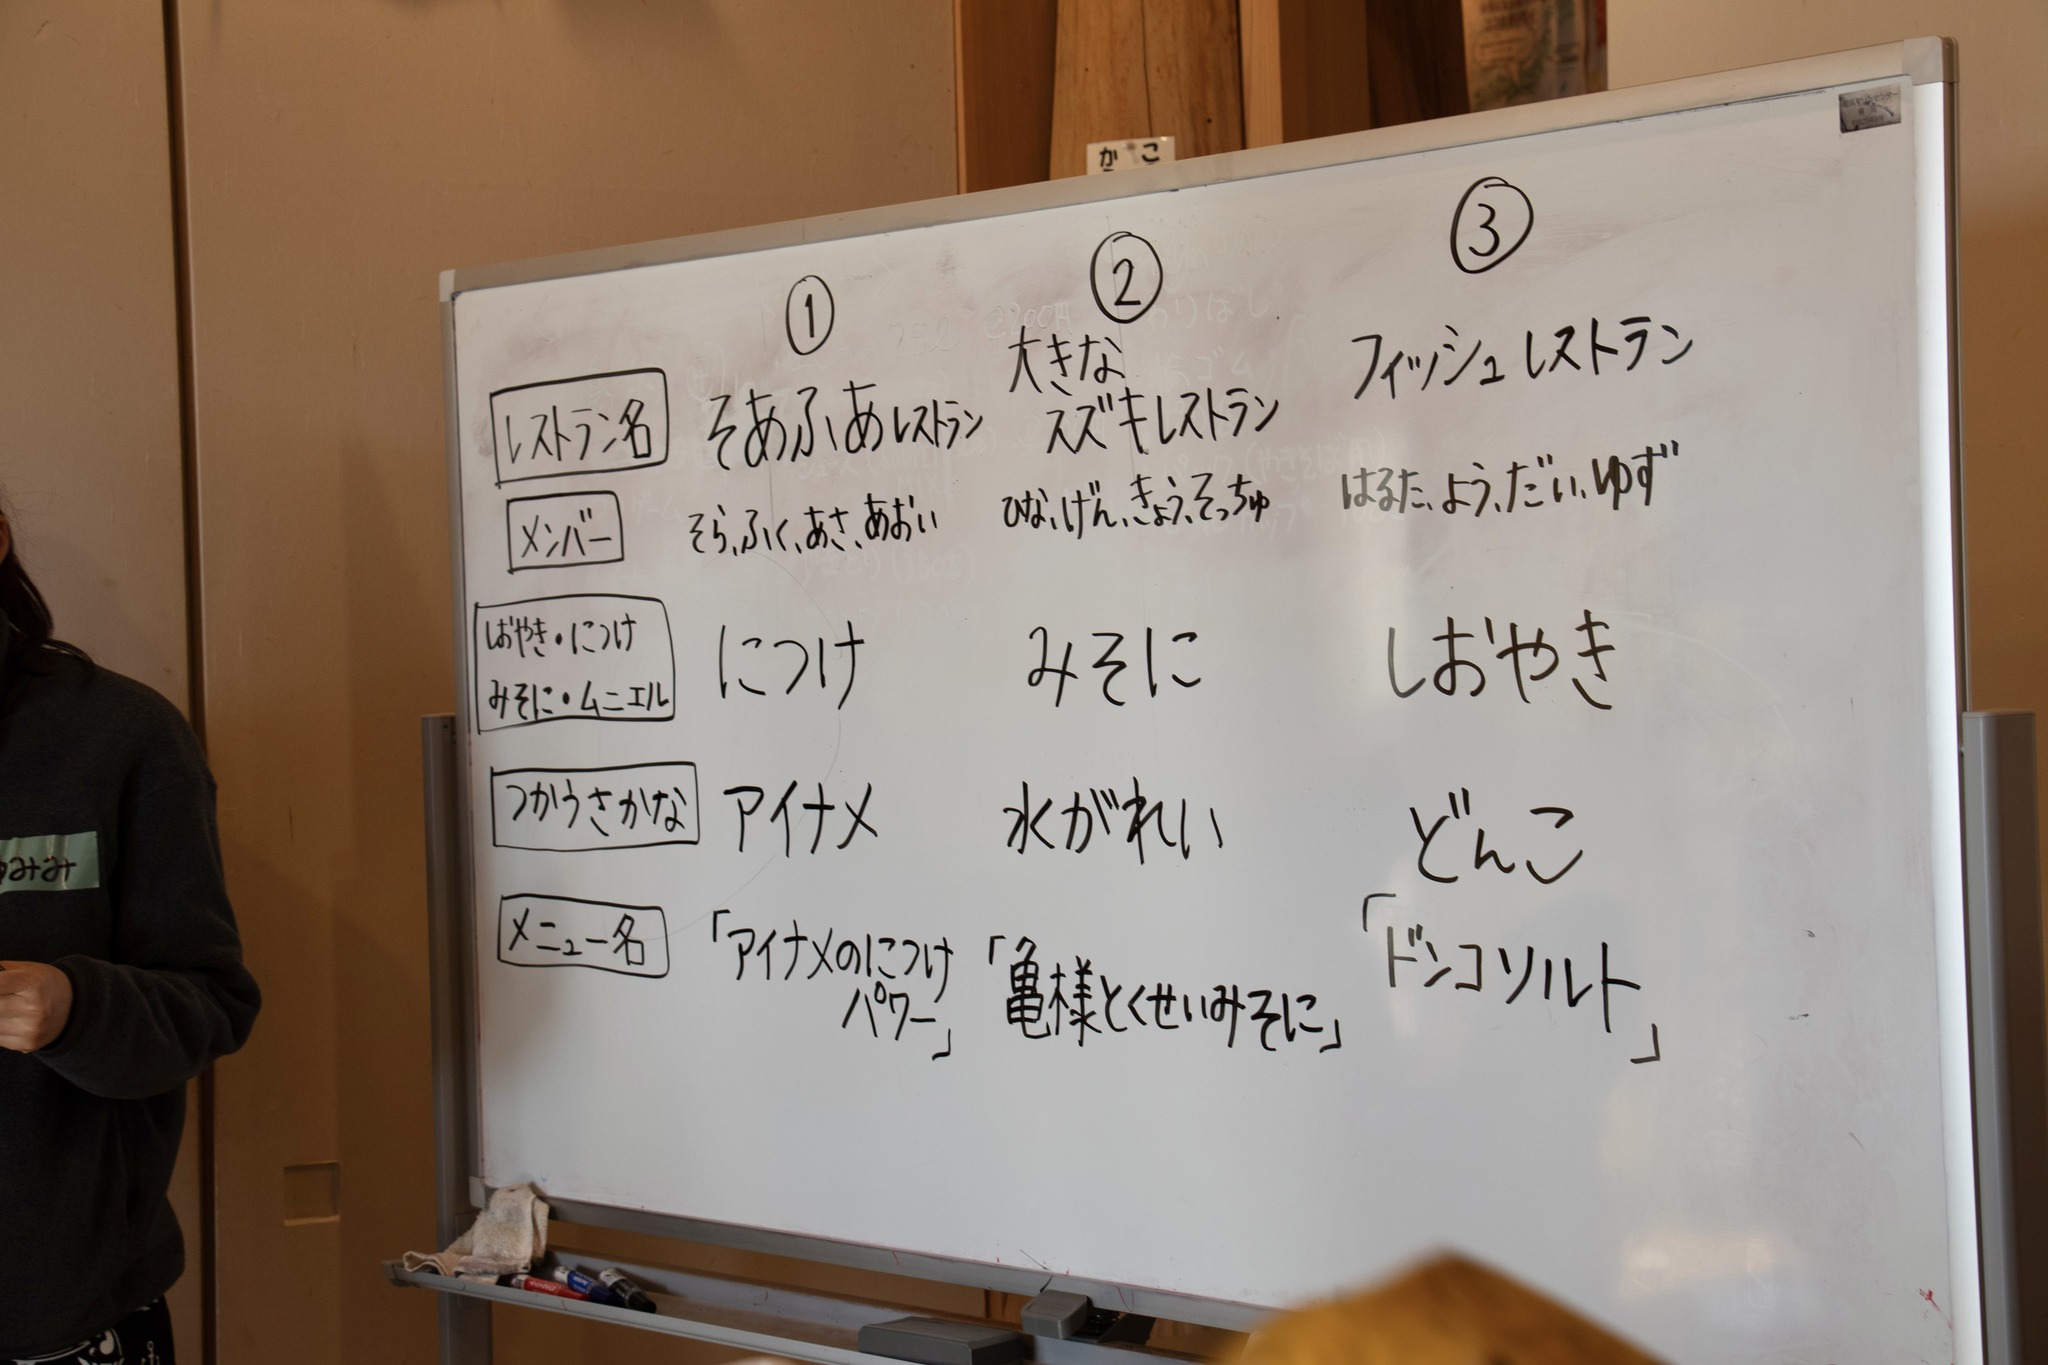 かこ
① ② ③
レストラン名
そあふあレストラン
大きな
スズキレストラン
フィッシュレストラン
メンバー
そら、ふく、あさ、あおい
ひな、げん、きょう、そっちゅ
はるた、よう、だい、ゆず
しおやき・につけ
みそに・ムニエル
につけ
みそに
しおやき
つかうさかな
アイナメ
水がれい
どんこ
メニュー名
「アイナメのにつけ
パワー」
「亀様とくせいみそに」
「ドンコソルト」
みみ